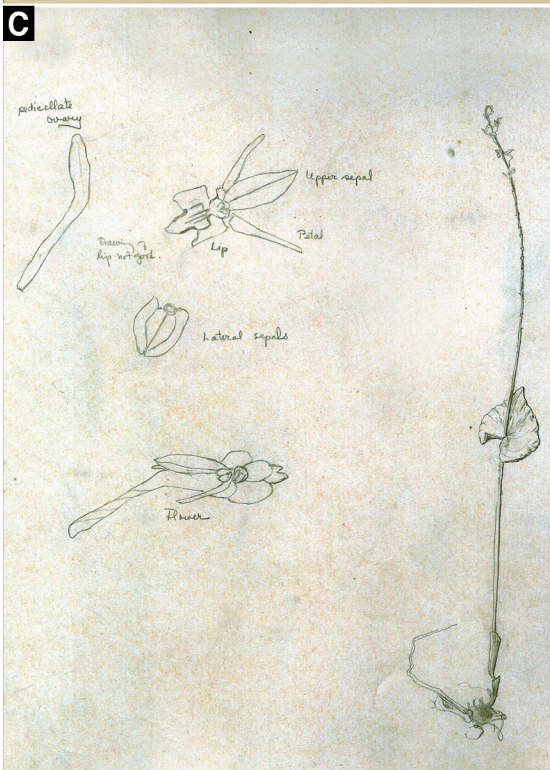 C
pedicellate
ovary
Upper sepal
Petal
Lip
Drawing of
lip not good.
Lateral sepals
Flower